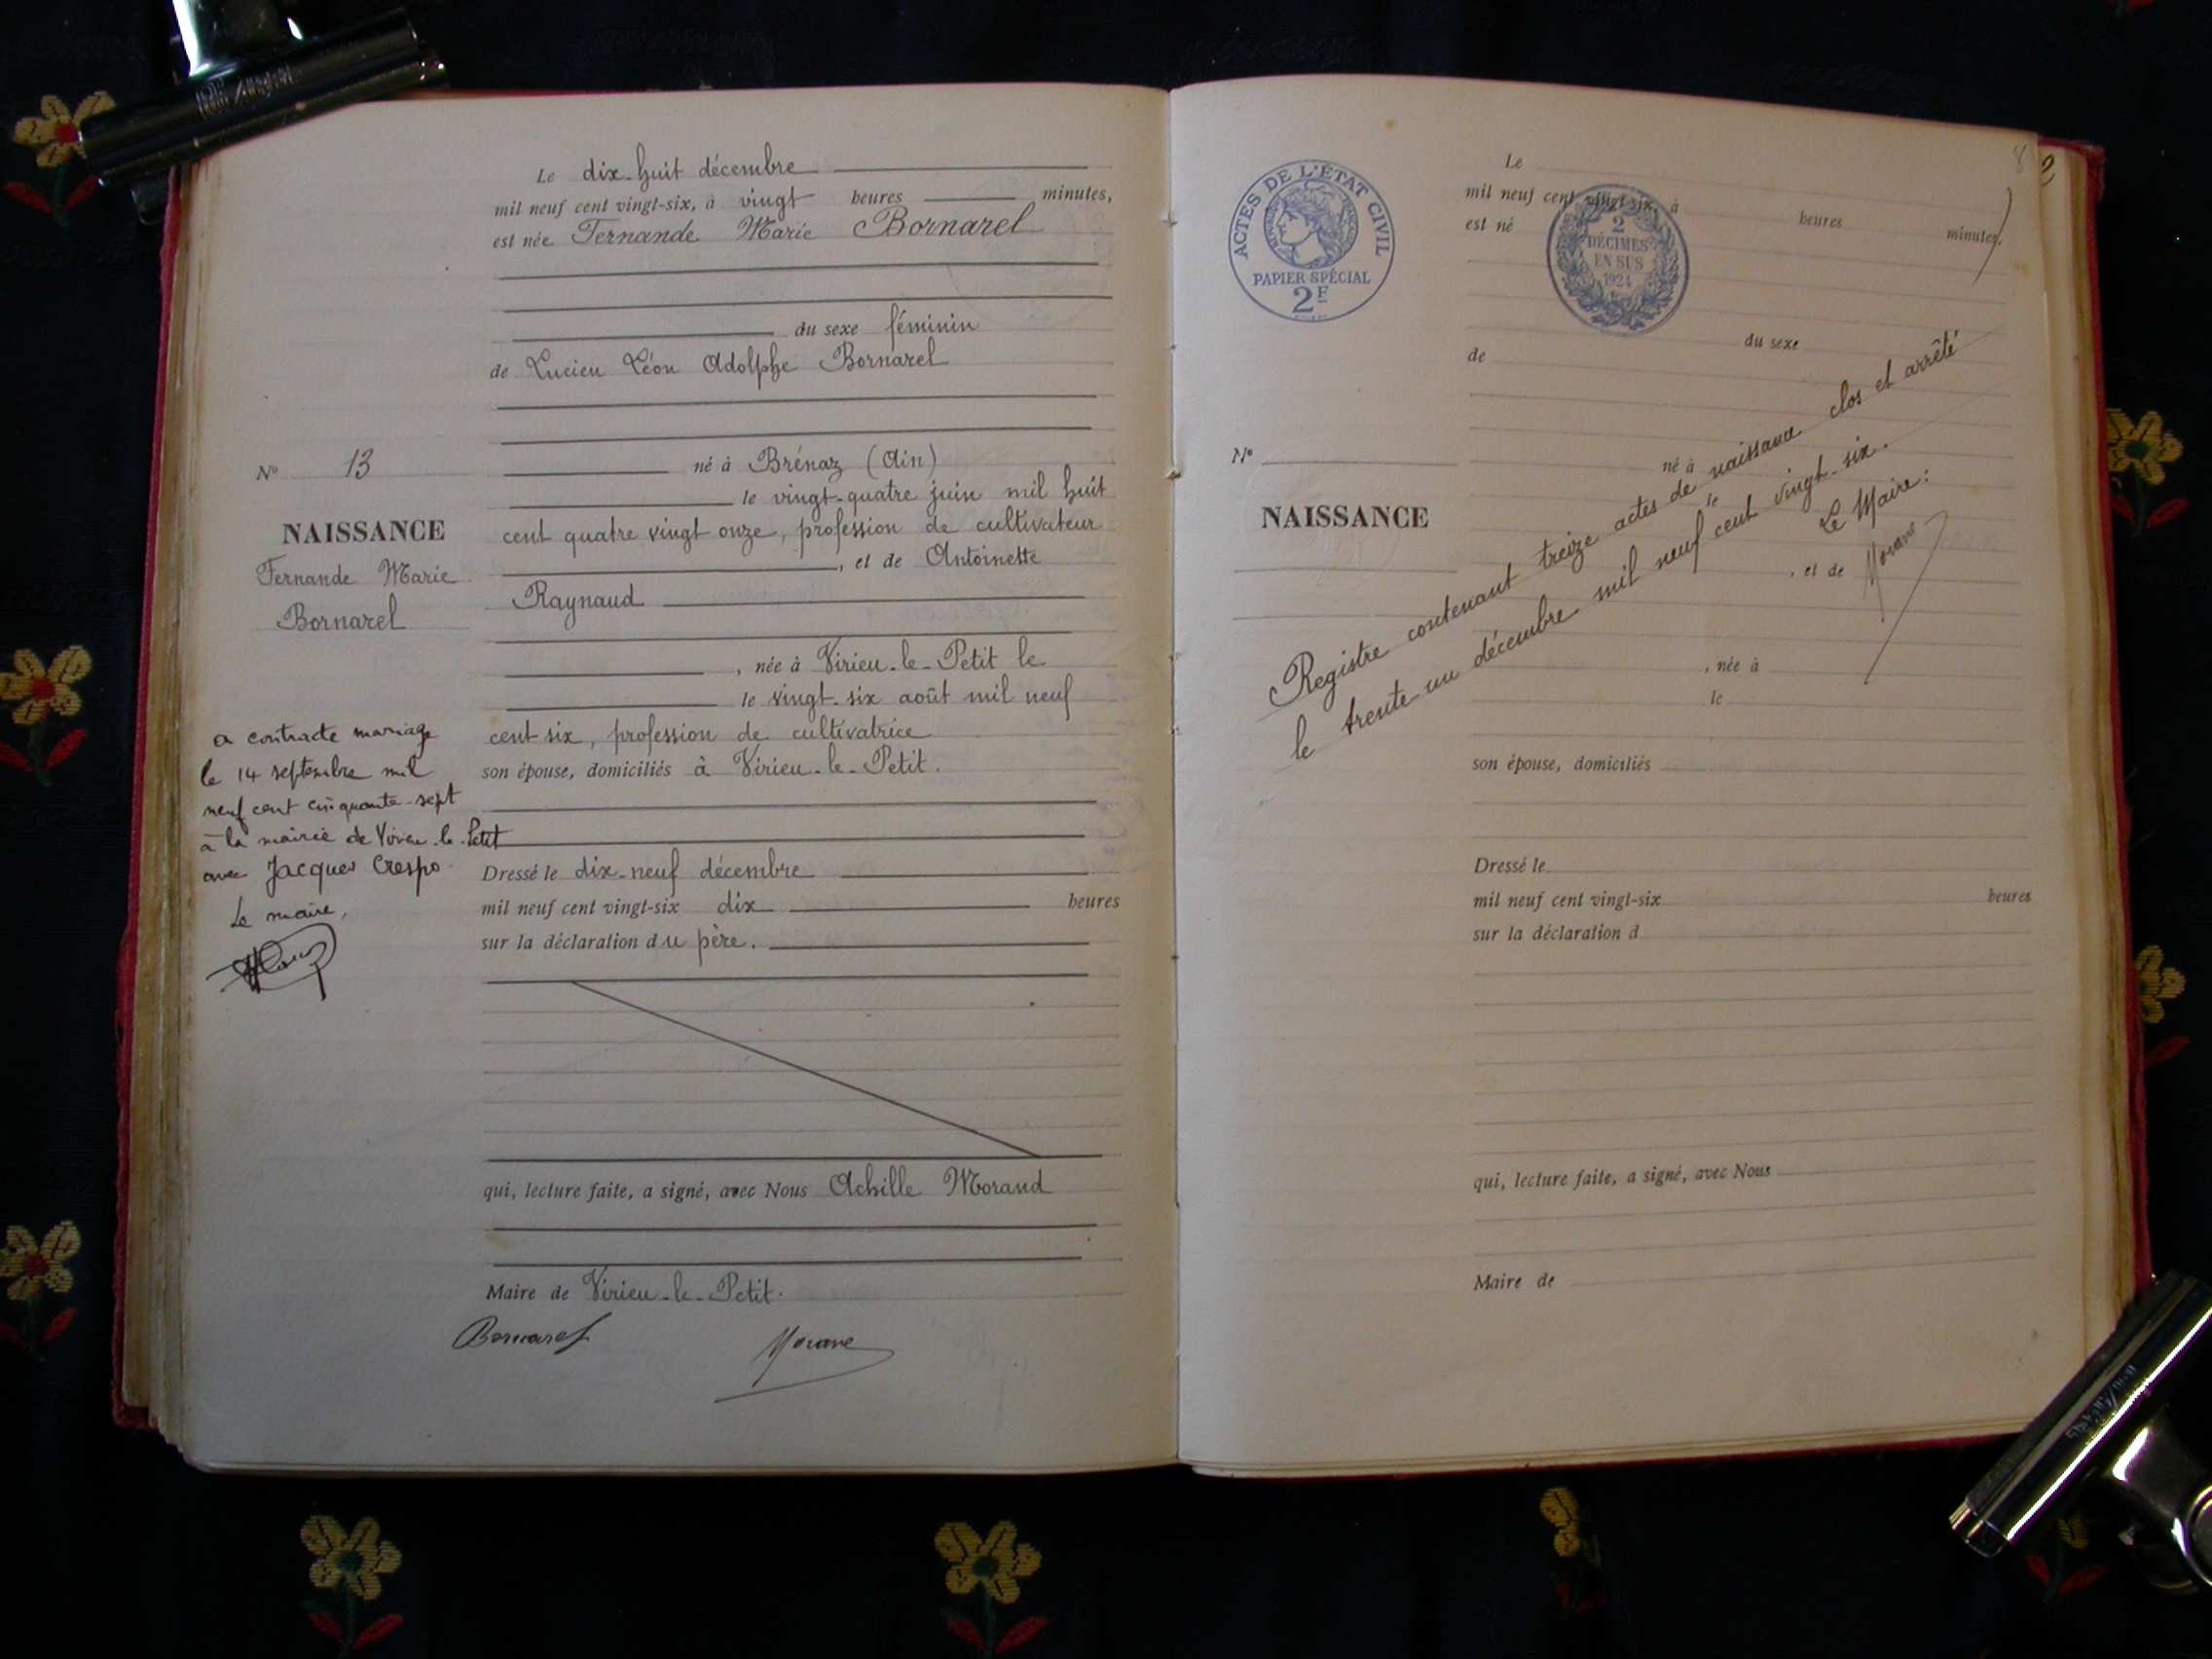 Le dix-huit décembre
mil neuf cent vingt-six, à vingt heures minutes,
est née Fernande Marie Bornarel
du sexe féminin
de Lucien Léon Adolphe Bornarel
né à Brénaz (Ain)
le vingt-quatre juin mil huit
cent quatre vingt onze, profession de cultivateur
, et de Antoinette
Raynaud
, née à Virieu-le-Petit le
le vingt-six août mil neuf
cent six, profession de cultivatrice
son épouse, domiciliés à Virieu-le-Petit.
Dressé le dix-neuf décembre
mil neuf cent vingt-six dix heures
sur la déclaration du père.
qui, lecture faite, a signé, avec Nous Achille Morand
Maire de Virieu-le-Petit.
Bornarel
N° 13
NAISSANCE
Fernande Marie
Bornarel
a contracte mariage
le 14 septembre mil
neuf cent cinquante-sept
à la mairie de Virieu-le-Petit
avec Jacques Crespo
Le maire,
8
2
ACTES DE L'ÉTAT CIVIL
PAPIER SPÉCIAL
2F
2
DÉCIMES
EN SUS
1924
Le
mil neuf cent vingt-six, à heures minutes,
est né
du sexe
de
né à
le
, et de
, née à
le
son épouse, domiciliés
Dressé le
mil neuf cent vingt-six heures
sur la déclaration d
qui, lecture faite, a signé, avec Nous
Maire de
N°
NAISSANCE
Registre contenant treize actes de naissance clos et arrêté
le trente-un décembre mil neuf cent vingt-six.
Le Maire: